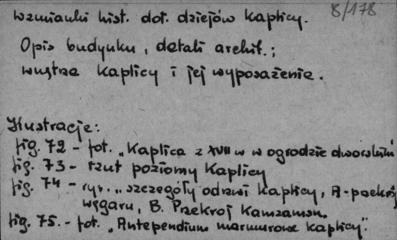 8/178
Wzmianki hist. dot. dziejów Kaplicy.
Opis budynku, detali archit.;
wnętrze Kaplicy i jej wyposażenie.
Ilustracje:
fig. 72 - fot. „Kaplica z XVII w w ogrodzie dworskim
fig. 73 - rzut poziomy Kaplicy
fig. 74 - rys. „szczegóły odrzwi Kaplicy, A-przekrój
węgaru, B. Przekrój
fig. 75. - fot. „Antependium marmurowe Kaplicy".